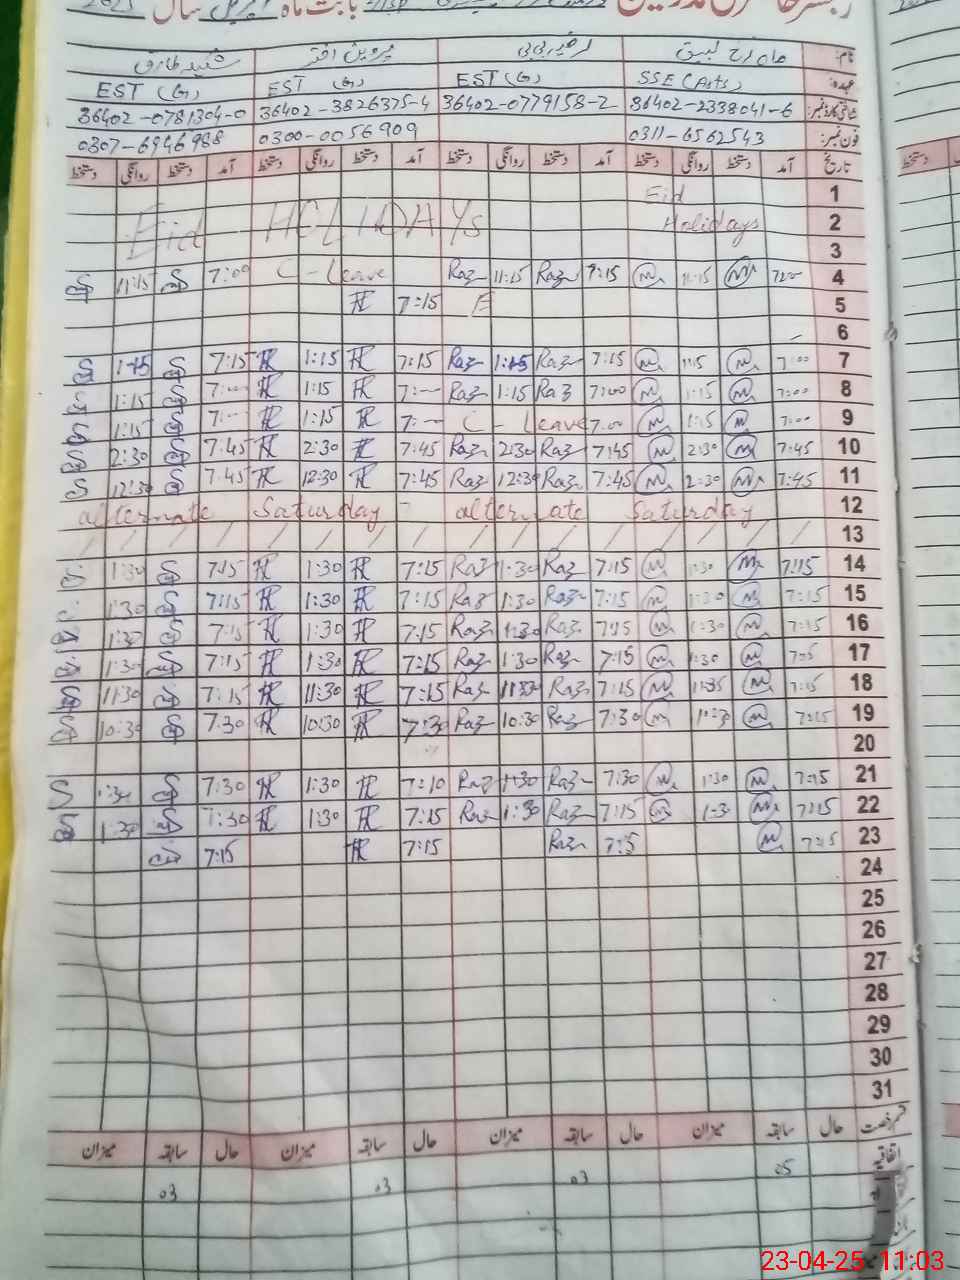 بابت ماہ اپریل سال
نام: ماہ رخ لبیق
پروین اختر
عہدہ: SSE (Arts) EST (G) EST (G) EST (G)
شناختی کارڈ نمبر: 36402-2338041-6 36402-0779158-2 36402-3826375-4 36402-0781304-0
فون نمبر: 0311-6562543 0300-0056909 0307-6946988
تاریخ آمد دستخط روانگی دستخط آمد دستخط روانگی دستخط آمد دستخط روانگی دستخط آمد دستخط روانگی دستخط
Eid 1
Eid HOLIDAYS Holidays 2
3
11:15 7:00 C-Leave Raz 11:15 Raz 7:15 11:15 7:00 4
7:15 5
6
1:15 7:15 1:15 7:15 Raz 1:15 Raz 7:15 1:15 7:00 7
1:15 7:— 1:15 7:— Raz 1:15 Raz 7:00 1:15 7:00 8
1:15 7:— 1:15 7:— C- Leave 7:00 1:15 7:00 9
2:30 7:45 2:30 7:45 Raz 2:30 Raz 7:45 2:30 7:45 10
12:30 7:45 12:30 7:45 Raz 12:30 Raz 7:45 2:30 7:45 11
alternate Saturday - alternate Saturday 12
/ / / / / / / / / / / / / / / 13
1:30 7:15 1:30 7:15 Raz 1:30 Raz 7:15 1:30 7:15 14
1:30 7:15 1:30 7:15 Raz 1:30 Raz 7:15 1:30 7:15 15
1:30 7:15 1:30 7:15 Raz 1:30 Raz 7:15 1:30 7:15 16
1:30 7:15 1:30 7:15 Raz 1:30 Raz 7:15 1:30 17
11:30 7:15 11:30 7:15 Raz 11:30 Raz 7:15 11:35 7:15 18
10:30 7:30 10:30 7:30 Raz 10:30 Raz 7:30 7:15 19
20
1:30 7:30 1:30 7:10 Raz 1:30 Raz 7:30 1:30 7:15 21
1:30 7:30 1:30 7:15 Raz 1:30 Raz 7:15 1:30 7:15 22
7:15 7:15 Raz 7:15 23
24
25
26
27
28
29
30
31
قسم رخصت حال سابقہ میزان حال سابقہ میزان حال سابقہ میزان حال سابقہ میزان
اتفاقیہ 05 03 03 03
23-04-25 11:03